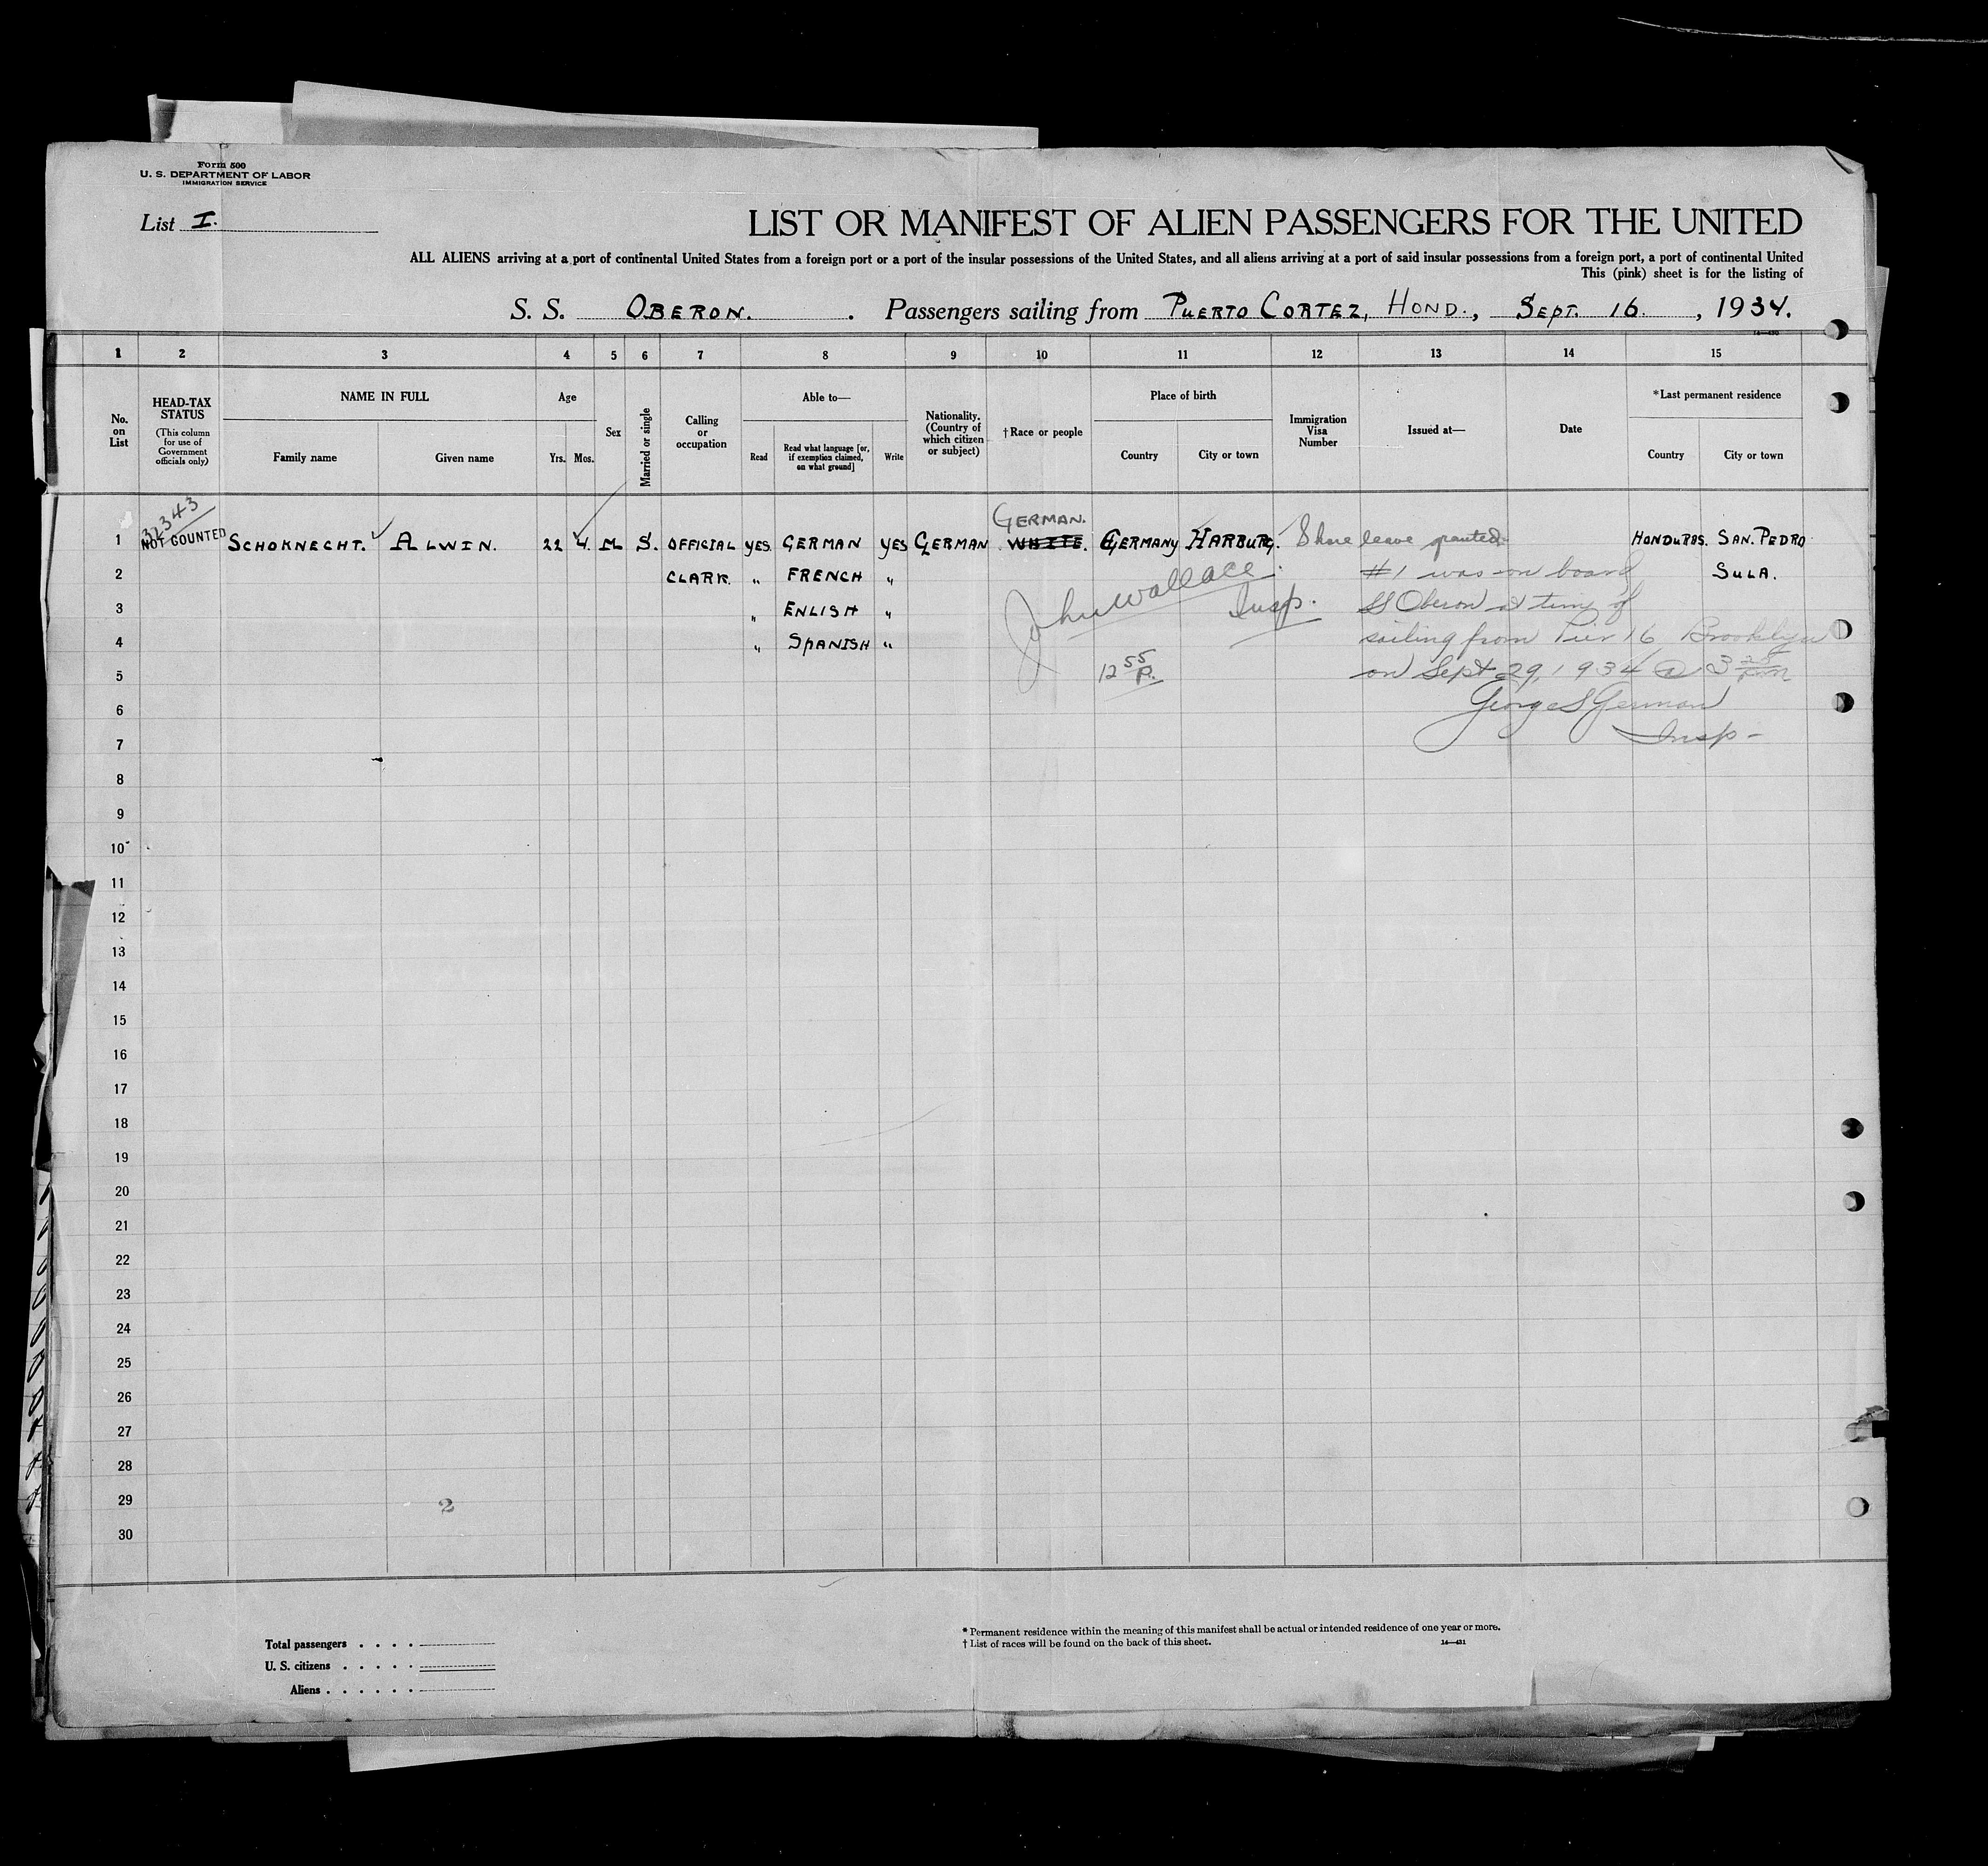 Form 500
U. S. DEPARTMENT OF LABOR
IMMIGRATION SERVICE
List I.
LIST OR MANIFEST OF ALIEN PASSENGERS FOR THE UNITED
ALL ALIENS arriving at a port of continental United States from a foreign port or a port of the insular possessions of the United States, and all aliens arriving at a port of said insular possessions from a foreign port, a port of continental United
This (pink) sheet is for the listing of
S. S. OBERON. . Passengers sailing from PUERTO CORTEZ, HOND., SEPT. 16. , 1934.
1 2 3 4 5 6 7 8 9 10 11 12 13 14 15
No. on List
HEAD-TAX STATUS
(This column for use of Government officials only)
NAME IN FULL
Family name Given name
Age
Yrs. Mos.
Sex
Married or single
Calling or occupation
Able to—
Read
Read what language [or, if exemption claimed, on what ground]
Write
Nationality. (Country of which citizen or subject)
†Race or people
Place of birth
Country City or town
Immigration Visa Number
Issued at—
Date
*Last permanent residence
Country City or town
32343
GERMAN.
1 NOT COUNTED SCHOKNECHT. ALWIN. 22 4. M S. OFFICIAL YES. GERMAN YES GERMAN WHITE. GERMANY HARBURG. Shore leave granted HONDURAS. SAN. PEDRO
2 CLARK. " FRENCH " John Wallace #1 was on board SULA.
3 " ENLISH " Insp. SS Oberon at time of
4 " SPANISH " sailing from Pier 16 Brooklyn
5 12 55 P. on Sept 29, 1934 @ 3 25 pm
6 George S German
7 Insp -
8
9
10
11
12
13
14
15
16
17
18
19
20
21
22
23
24
25
26
27
28
29 2
30
Total passengers . . . .
U. S. citizens . . . . .
Aliens . . . . . .
* Permanent residence within the meaning of this manifest shall be actual or intended residence of one year or more.
† List of races will be found on the back of this sheet.